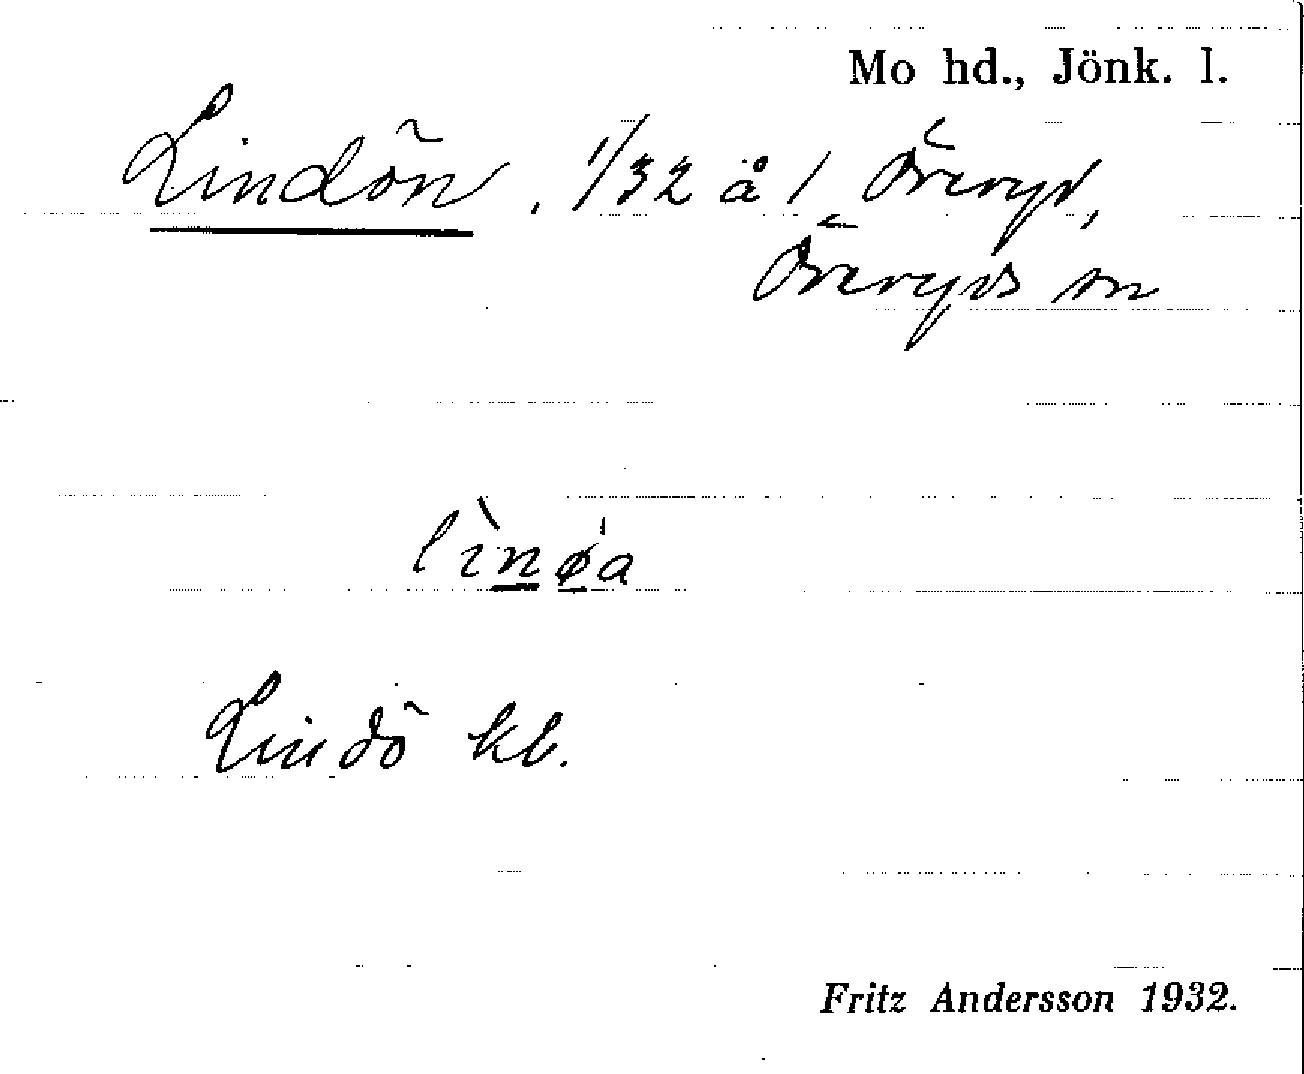 Mo hd., Jönk. l.
Lindön, 1/32 å 1 Öreryd,
Öreryds sn
lìnø̱a
Lindö kb.
Fritz Andersson 1932.